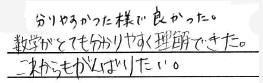 分りやすかった様で良かった。
数学がとても分かりやすく理解できた。
これからもがんばりたい。